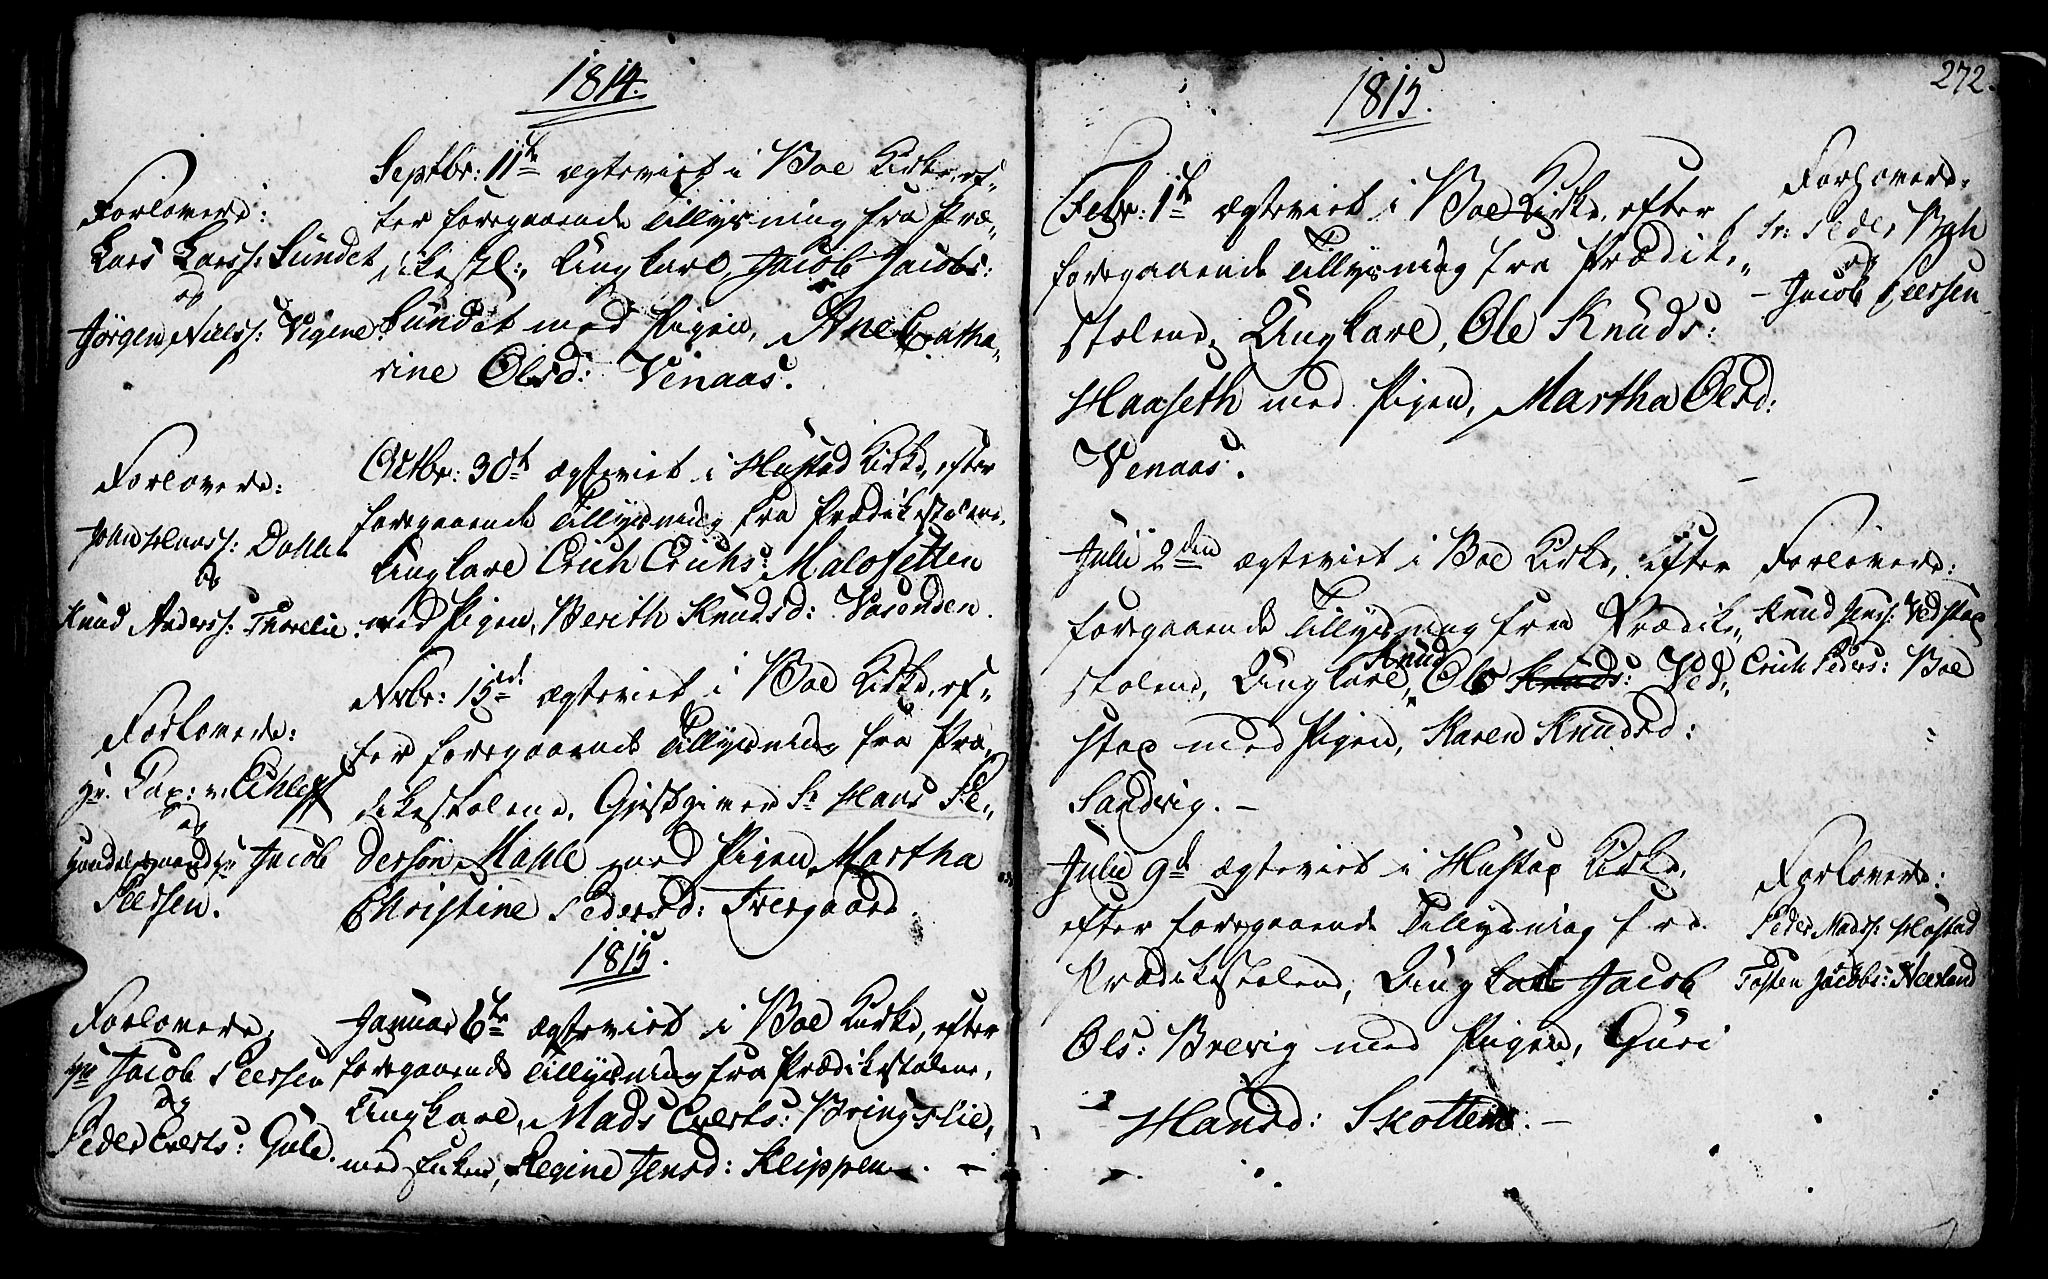 1814.
Forlovere:
Lars Larss: Sundet
og
Jörgen Nielss: Vigene
Septbr: 11te ægteviet i Boe Kirke, ef-
ter foregaaende Tillysning fra Præ-
dikestl:, Ungkarl Jacob Jacobs:
Sundet med Pigen, Ane Catha-
rine Olsd: Venaas.
Forlovere:
John Clauss: Dahle
og
Knud Anderss: Thorelie
Octbr: 30t ægteviet i Hustad Kirke, efter
foregaaende Tillysning fra Prædikestolene,
Ungkarl Erich Erichs: Malosetten
med Pigen, Berith Knudsd: Vasenden.
Forlovere:
Hr. Cap: v. Ehleff
og
Handelsmand Hr Jacob
Peersen.
Nvbr: 15de ægteviet i Boe Kirke, ef-
ter foregaaende Tillysning fra Præ-
dikestolene, Gjestgiver Sr Hans Pe-
dersön Mahle med Pigen, Martha
Christine Pedersd: Tvergaard
1815.
Forlovere,
Hr Jacob Peersen
og
Peder Everts: Gule.
Januar 6te ægteviet i Boe Kirke, efter
foregaaende Tillysning fra Prædikestolene,
Ungkarl, Mads Everts: Bringslie,
med Enken, Regine Jensd: Klippen. -
1815.
272.
Febr: 1te ægteviet i Boe Kirke, efter
foregaaende Tillysning fra Prædike-
stolene, Ungkarl, Ole Knuds:
Haaseth med Pigen, Martha Olsd:
Venaas.
Forlovere.
Sr: Peder Bgh
og
- Jacob Peersen
Julii 2den ægteviet i Boe Kirke, efter
foregaaende Tillysning fra Prædike-
stolene, Ungkarl, Knud Ols Knuds: Ved-
stap med Pigen, Karen Knudsd:
Sandvig. -
Forlovere:
Knud Jens: Vedstap
og
Erich Peders: Boe
Julii 9de ægteviet i Hustap Kirke,
efter foregaaende Tillysning fra
Prædikestolene, Ungkarl Jacob
Ols: Brevig med Pigen, Guri
Hansd: Skottem. -
Forlovere:
Peder Madss: Hostad
og
Tosten Jacobs: Neeland